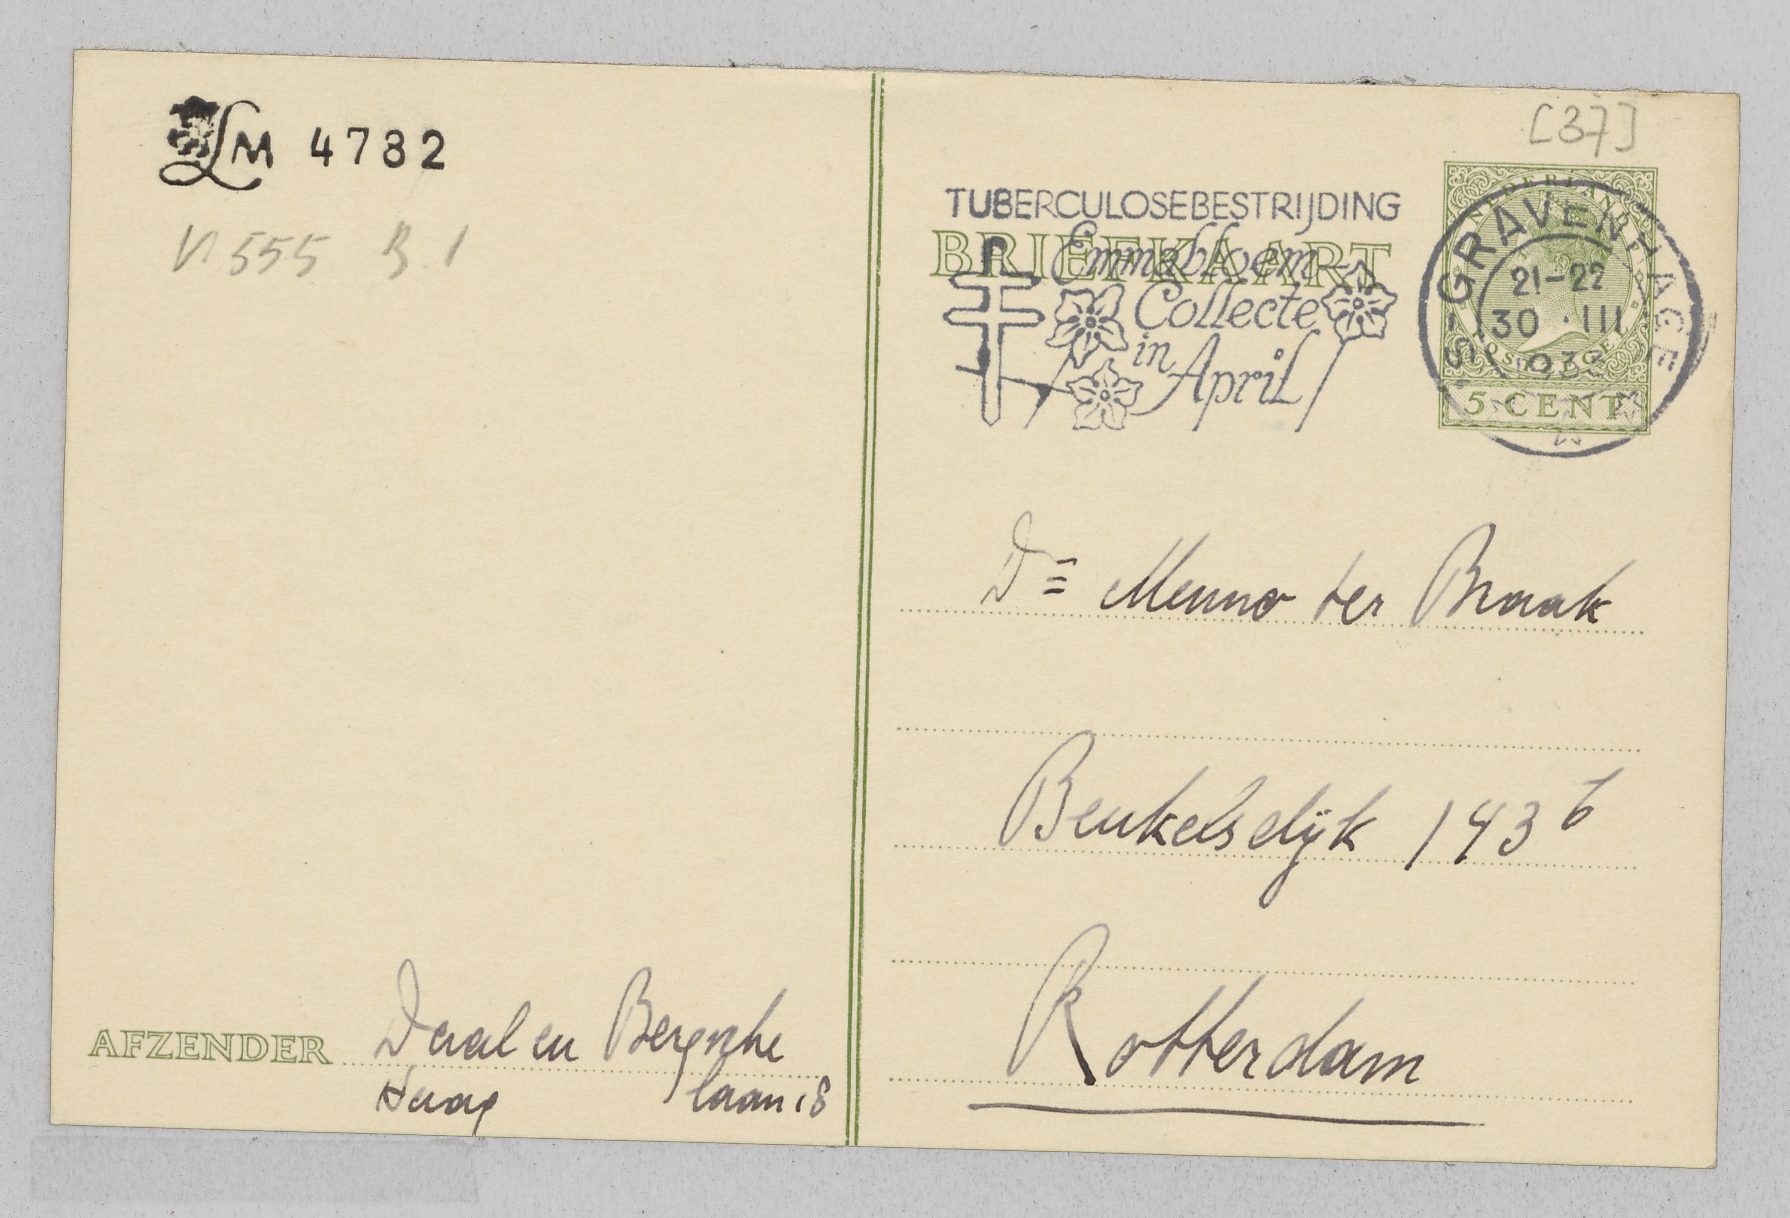 LM 4782
V 555 B. 1
[37]
TUBERCULOSEBESTRIJDING
BRIEFKAART
Emmabloem
Collecte
in
April
'S-GRAVENHAGE
21-22
30 · III
933
NEDERLAND
POSTAGE
5 CENT
Dr Menno ter Braak
Beukelsdijk 143 b
Rotterdam
AFZENDER Daal en Bergsche
Haag laan 18